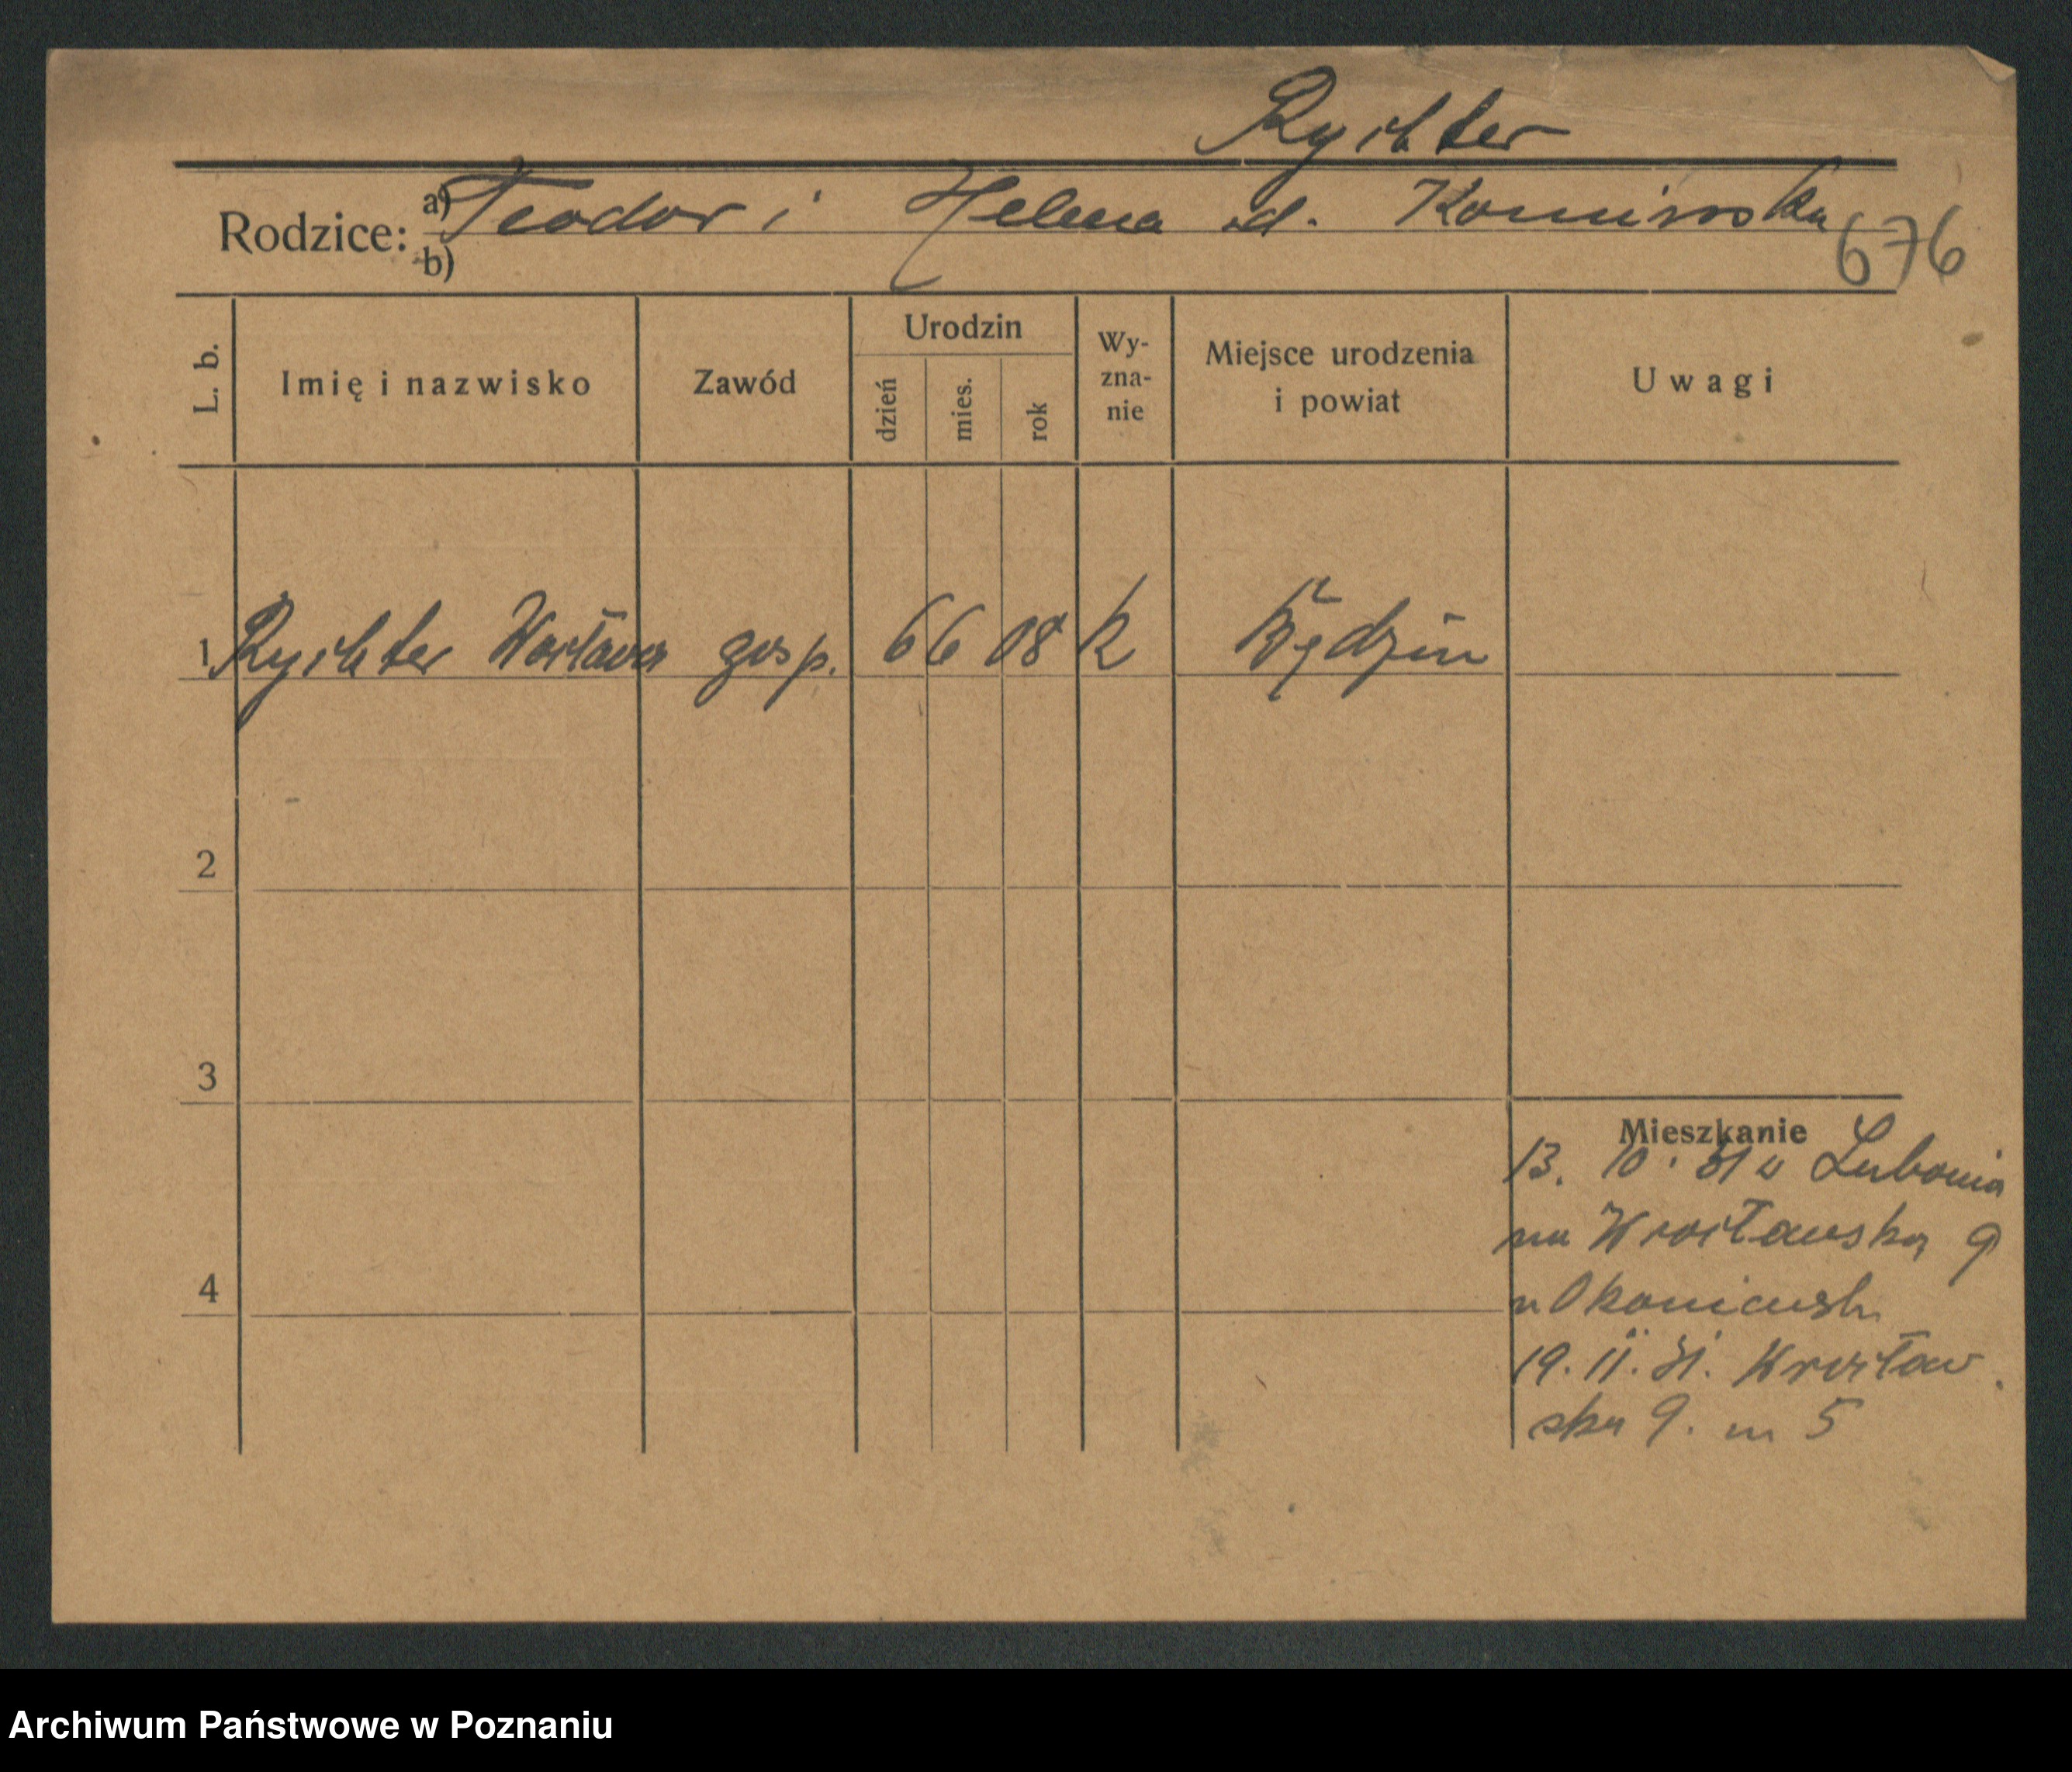 Rychter
Rodzice: a) Teodor i Helena
b)
676
L. b. Imię i nazwisko Zawód Urodzin dzień mies. rok Wy-zna-nie Miejsce urodzenia i powiat Uwagi
1 Rychter Wacława gosp. 6 6 08 k
2
3
Mieszkanie
13. 10. 31 z Lubonia
na Wrocławską 9
4
19. 11. 31. Wrocław
ska 9. m 5
Archiwum Państwowe w Poznaniu